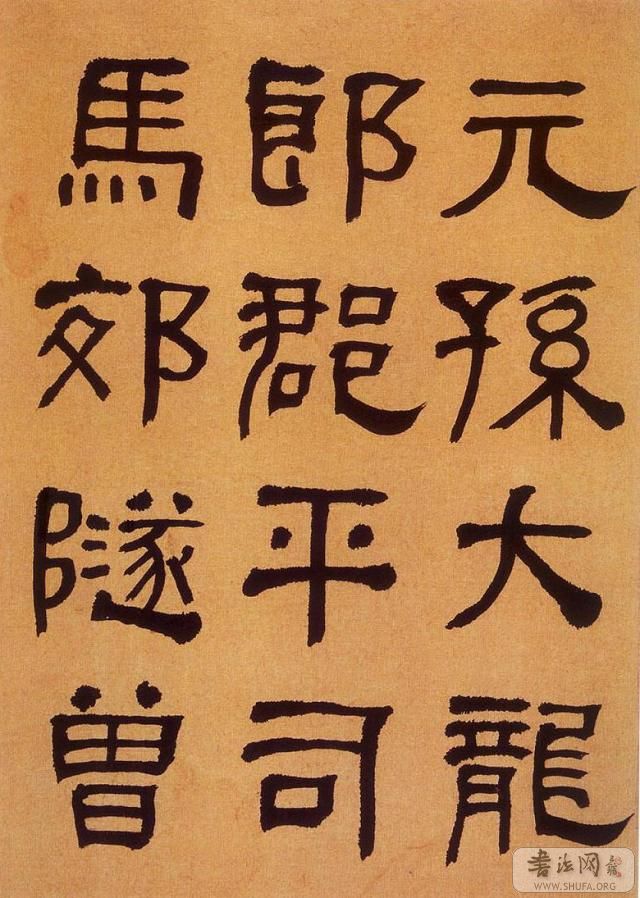 元孫大龍
郎郡平司
馬郊隧曾
書法网
WWW.SHUFA.ORG